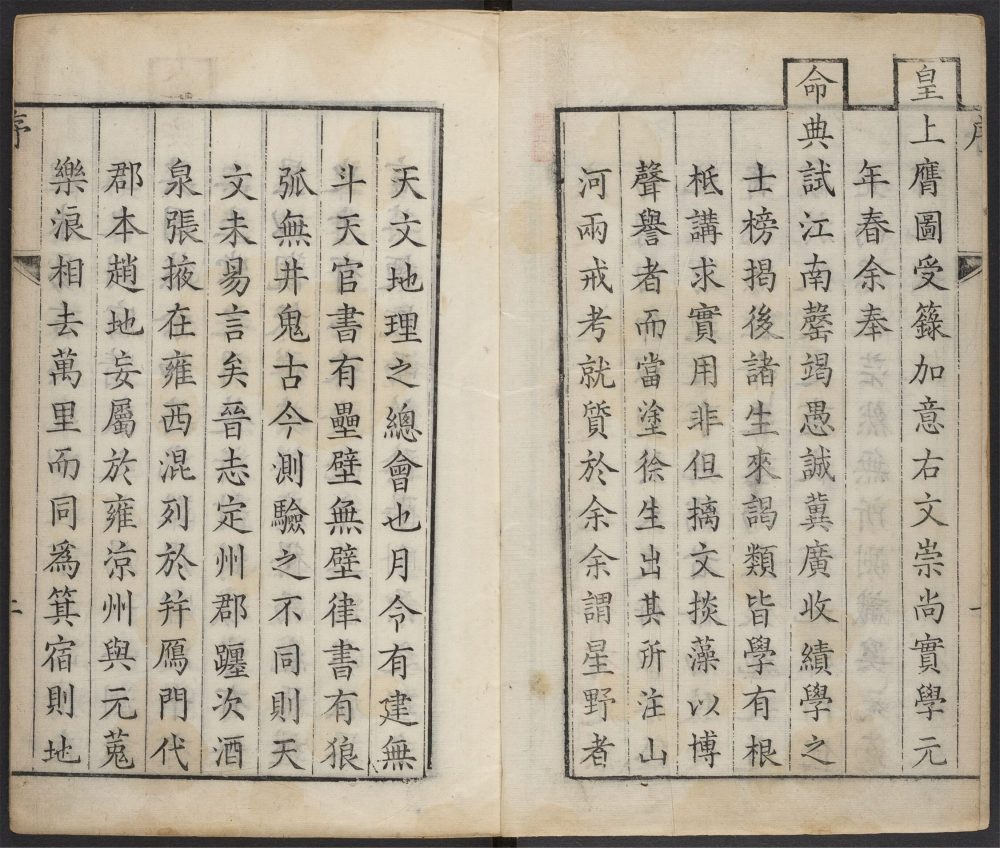 皇上膺圖受籙加意右文崇尚實學元
年春余奉
命典試江南罄竭愚誠冀廣收績學之
士榜揭後諸生來謁類皆學有根
柢講求實用非但摛文掞藻以博
聲譽者而當塗徐生出其所注山
河兩戒考就質於余余謂星野者
天文地理之總會也月令有建無
斗天官書有壘壁無壁律書有狼
弧無井鬼古今測驗之不同則天
文未易言矣晉志定州郡躔次酒
泉張掖在雍西混列於幷鴈門代
郡本趙地妄屬於雍涼州與元菟
樂浪相去萬里而同爲箕宿則地
序
二